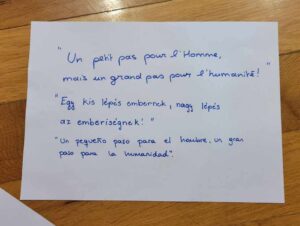 "Un petit pas pour l'Homme,
mais un grand pas pour l'humanité!"
"Egy kis lépés embernek, nagy lépés
az emberiségnek!"
"Un pequeño paso para el hombre, un gran
paso para la humanidad".